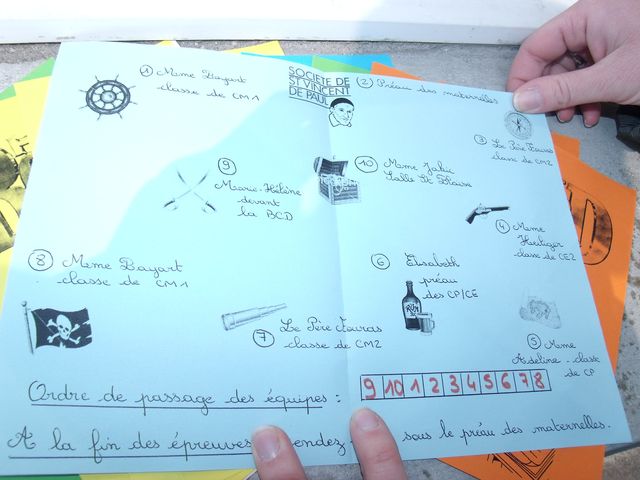 ① Mme Bayart
classe de CM1
SOCIETE DE
ST VINCENT
DE PAUL
② Préau des maternelles
③ Le Père Fouras
classe de CM2
⑨
Marie-Hélène
devant
la BCD
⑩ Mme Julie
Salle St Blaise
④ Mme
classe de CE2
⑧ Mme Bayart
classe de CM1
⑥ Elisabeth
préau
des CP/CE
RUM
⑦ Le Père Fouras
classe de CM2
⑤ Mme
Adeline - classe
de CP
Ordre de passage des équipes :
9 10 1 2 3 4 5 6 7 8
A la fin des épreuves endez sous le préau des maternelles.